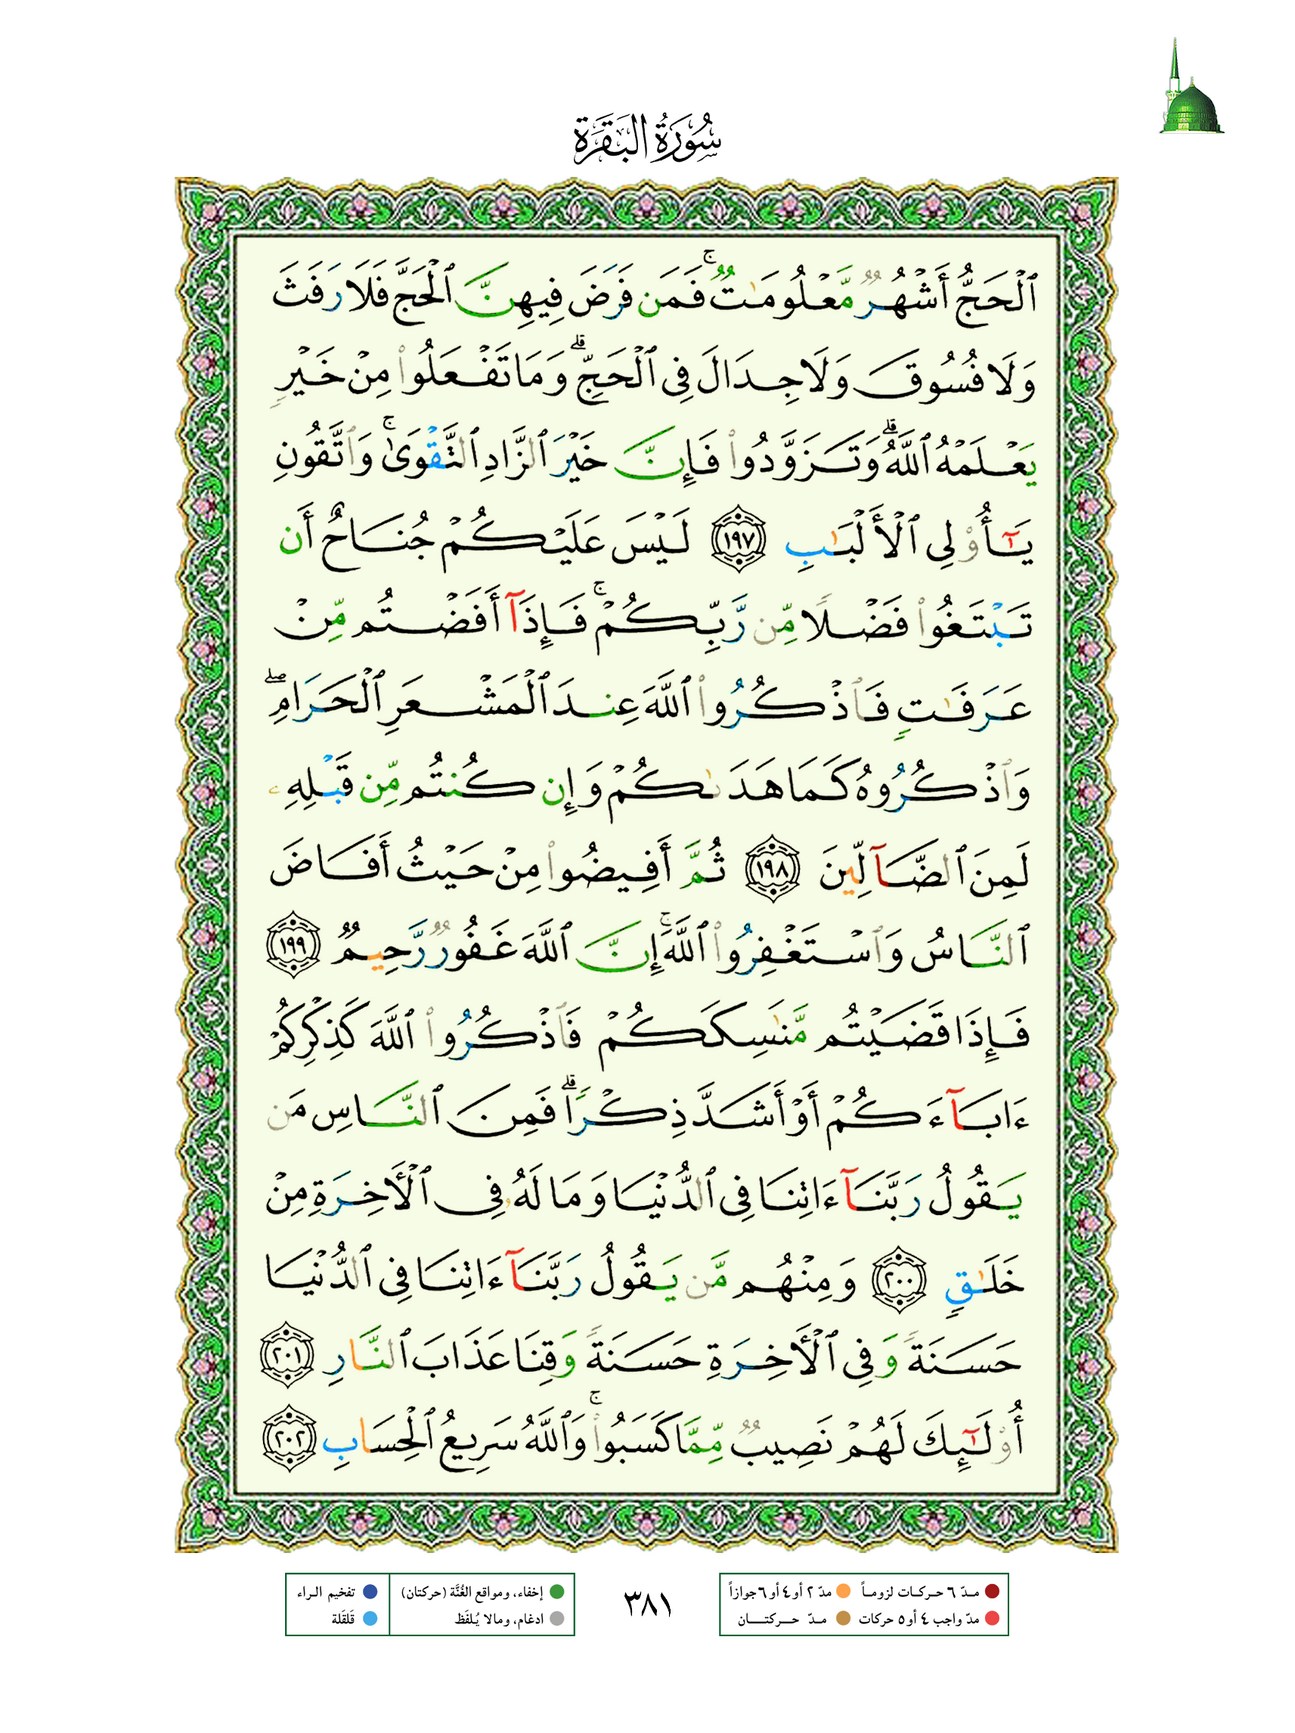 سُورَةُ البَقَرَة
ٱلْحَجُّ أَشْهُرٌ مَّعْلُومَٰتٌ ۚ فَمَن فَرَضَ فِيهِنَّ ٱلْحَجَّ فَلَا رَفَثَ
وَلَا فُسُوقَ وَلَا جِدَالَ فِى ٱلْحَجِّ ۗ وَمَا تَفْعَلُوا۟ مِنْ خَيْرٍ
يَعْلَمْهُ ٱللَّهُ ۗ وَتَزَوَّدُوا۟ فَإِنَّ خَيْرَ ٱلزَّادِ ٱلتَّقْوَىٰ ۚ وَٱتَّقُونِ
يَٰٓأُو۟لِى ٱلْأَلْبَٰبِ ١٩٧ لَيْسَ عَلَيْكُمْ جُنَاحٌ أَن
تَبْتَغُوا۟ فَضْلًا مِّن رَّبِّكُمْ ۚ فَإِذَآ أَفَضْتُم مِّنْ
عَرَفَٰتٍ فَٱذْكُرُوا۟ ٱللَّهَ عِندَ ٱلْمَشْعَرِ ٱلْحَرَامِ ۖ
وَٱذْكُرُوهُ كَمَا هَدَىٰكُمْ وَإِن كُنتُم مِّن قَبْلِهِۦ
لَمِنَ ٱلضَّآلِّينَ ١٩٨ ثُمَّ أَفِيضُوا۟ مِنْ حَيْثُ أَفَاضَ
ٱلنَّاسُ وَٱسْتَغْفِرُوا۟ ٱللَّهَ ۚ إِنَّ ٱللَّهَ غَفُورٌ رَّحِيمٌ ١٩٩
فَإِذَا قَضَيْتُم مَّنَٰسِكَكُمْ فَٱذْكُرُوا۟ ٱللَّهَ كَذِكْرِكُمْ
ءَابَآءَكُمْ أَوْ أَشَدَّ ذِكْرًا ۗ فَمِنَ ٱلنَّاسِ مَن
يَقُولُ رَبَّنَآ ءَاتِنَا فِى ٱلدُّنْيَا وَمَا لَهُۥ فِى ٱلْأَخِرَةِ مِنْ
خَلَٰقٍ ٢٠٠ وَمِنْهُم مَّن يَقُولُ رَبَّنَآ ءَاتِنَا فِى ٱلدُّنْيَا
حَسَنَةً وَفِى ٱلْأَخِرَةِ حَسَنَةً وَقِنَا عَذَابَ ٱلنَّارِ ٢٠١
أُو۟لَٰٓئِكَ لَهُمْ نَصِيبٌ مِّمَّا كَسَبُوا۟ ۚ وَٱللَّهُ سَرِيعُ ٱلْحِسَابِ ٢٠٢
مدّ ٦ حركات لزوماً مدّ ٢ أو ٤ أو ٦ جوازاً
مدّ واجب ٤ أو ٥ حركات مدّ حركتان
٣٨١
إخفاء، ومواقع الغُنَّة (حركتان) تفخيم الراء
ادغام، ومالا يُلفَظ قَلقَلة